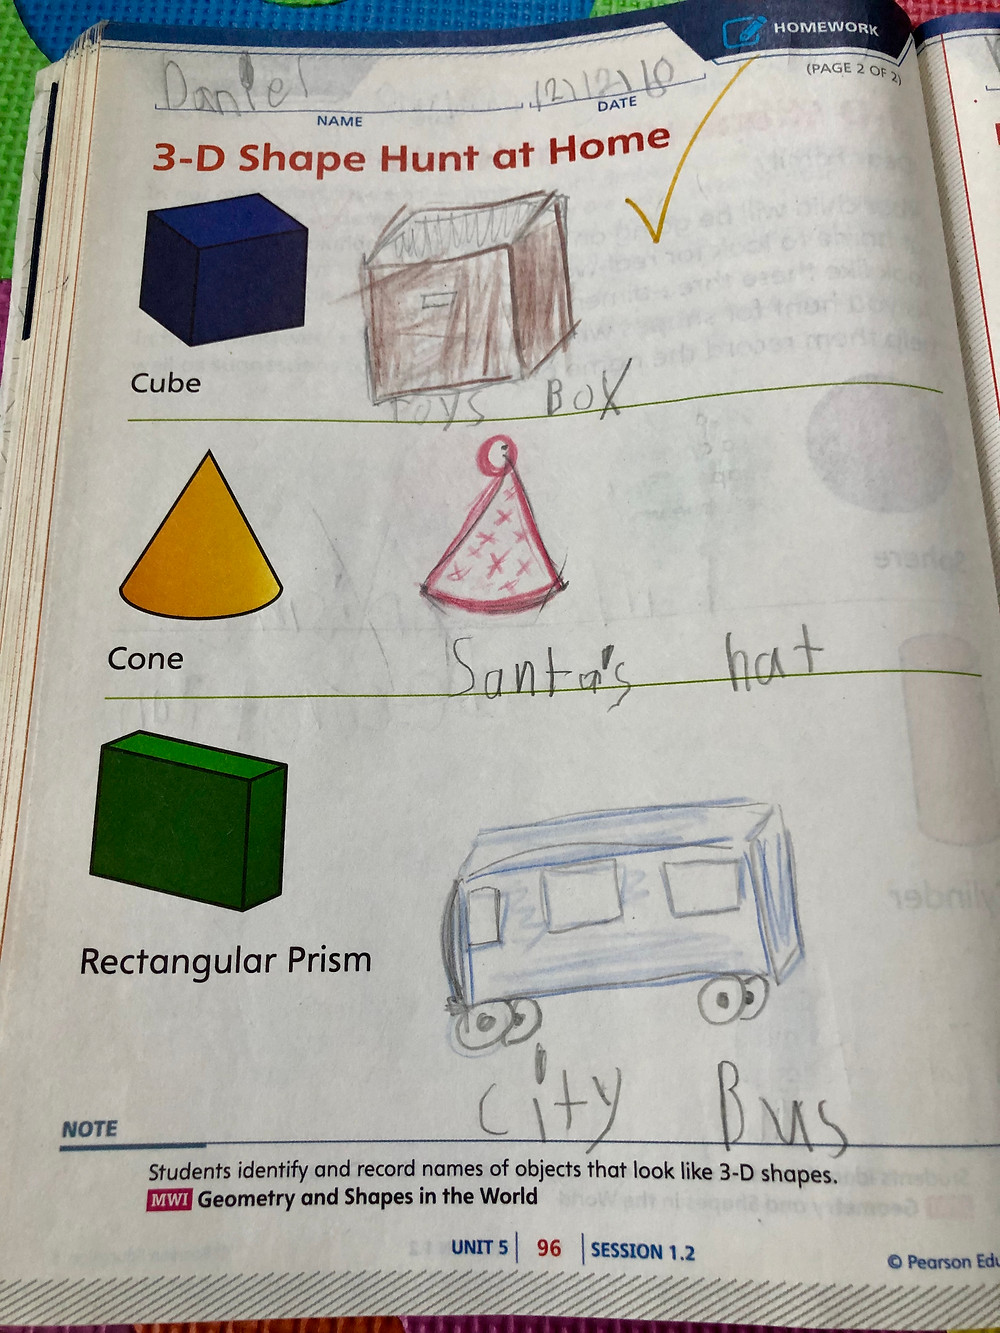 HOMEWORK
(PAGE 2 OF 2)
Daniel
NAME
DATE
3-D Shape Hunt at Home
Cube
Toys Box
Cone
Santa's hat
Rectangular Prism
City Bus
NOTE
Students identify and record names of objects that look like 3-D shapes.
MWI Geometry and Shapes in the World
UNIT 5 | 96 | SESSION 1.2
© Pearson